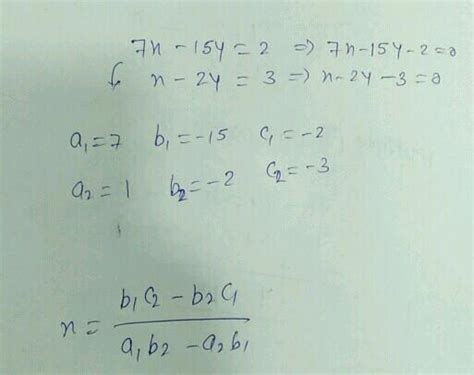 7x - 15y = 2 => 7x - 15y - 2 = 0
x - 2y = 3 => x - 2y - 3 = 0
a₁ = 7 b₁ = -15 c₁ = -2
a₂ = 1 b₂ = -2 c₂ = -3
x = (b₁c₂ - b₂c₁) / (a₁b₂ - a₂b₁)